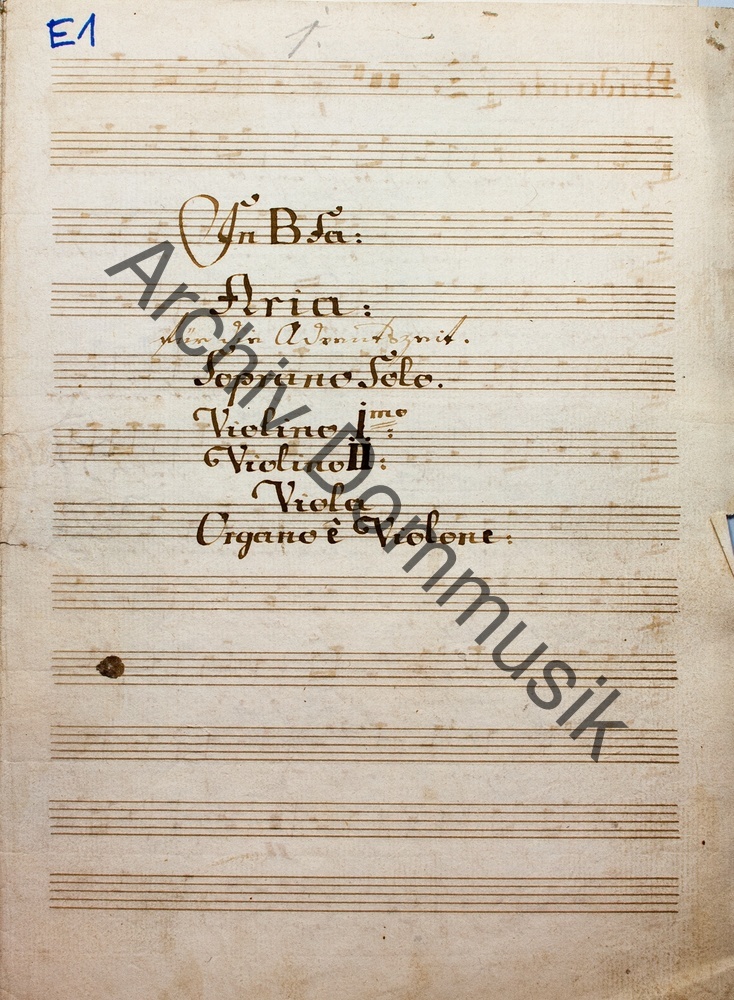 E1
1.
In B Fa:
Aria:
für die Adventszeit.
Soprano Solo.
Violino I mo:
Violino II:
Viola
Organo è Violone:
Archiv Dommusik